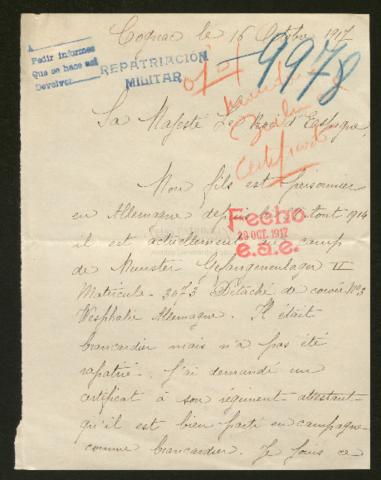 Cognac le 16 Octobre 1917
A
Pedir informes
Que se hace así
Devolver
REPATRIACIÓN
MILITAR
9978
Sa Majesté Le Roi d'Espagne,
certificado
Mon fils est prisonnier
en Allemagne depuis août 1914
Fecho
29 OCT. 1917
e.a.e.
il est actuellement au camp
de Munster Gefangenenlager II
Matricule - 3073 Détaché de corvée No3
Wesphalie Allemagne. Il était
brancardier mais n'a pas été
rapatrié. J'ai demandé un
certificat à son régiment attestant
qu'il est bien parti en campagne
comme brancardier. Je joins ce